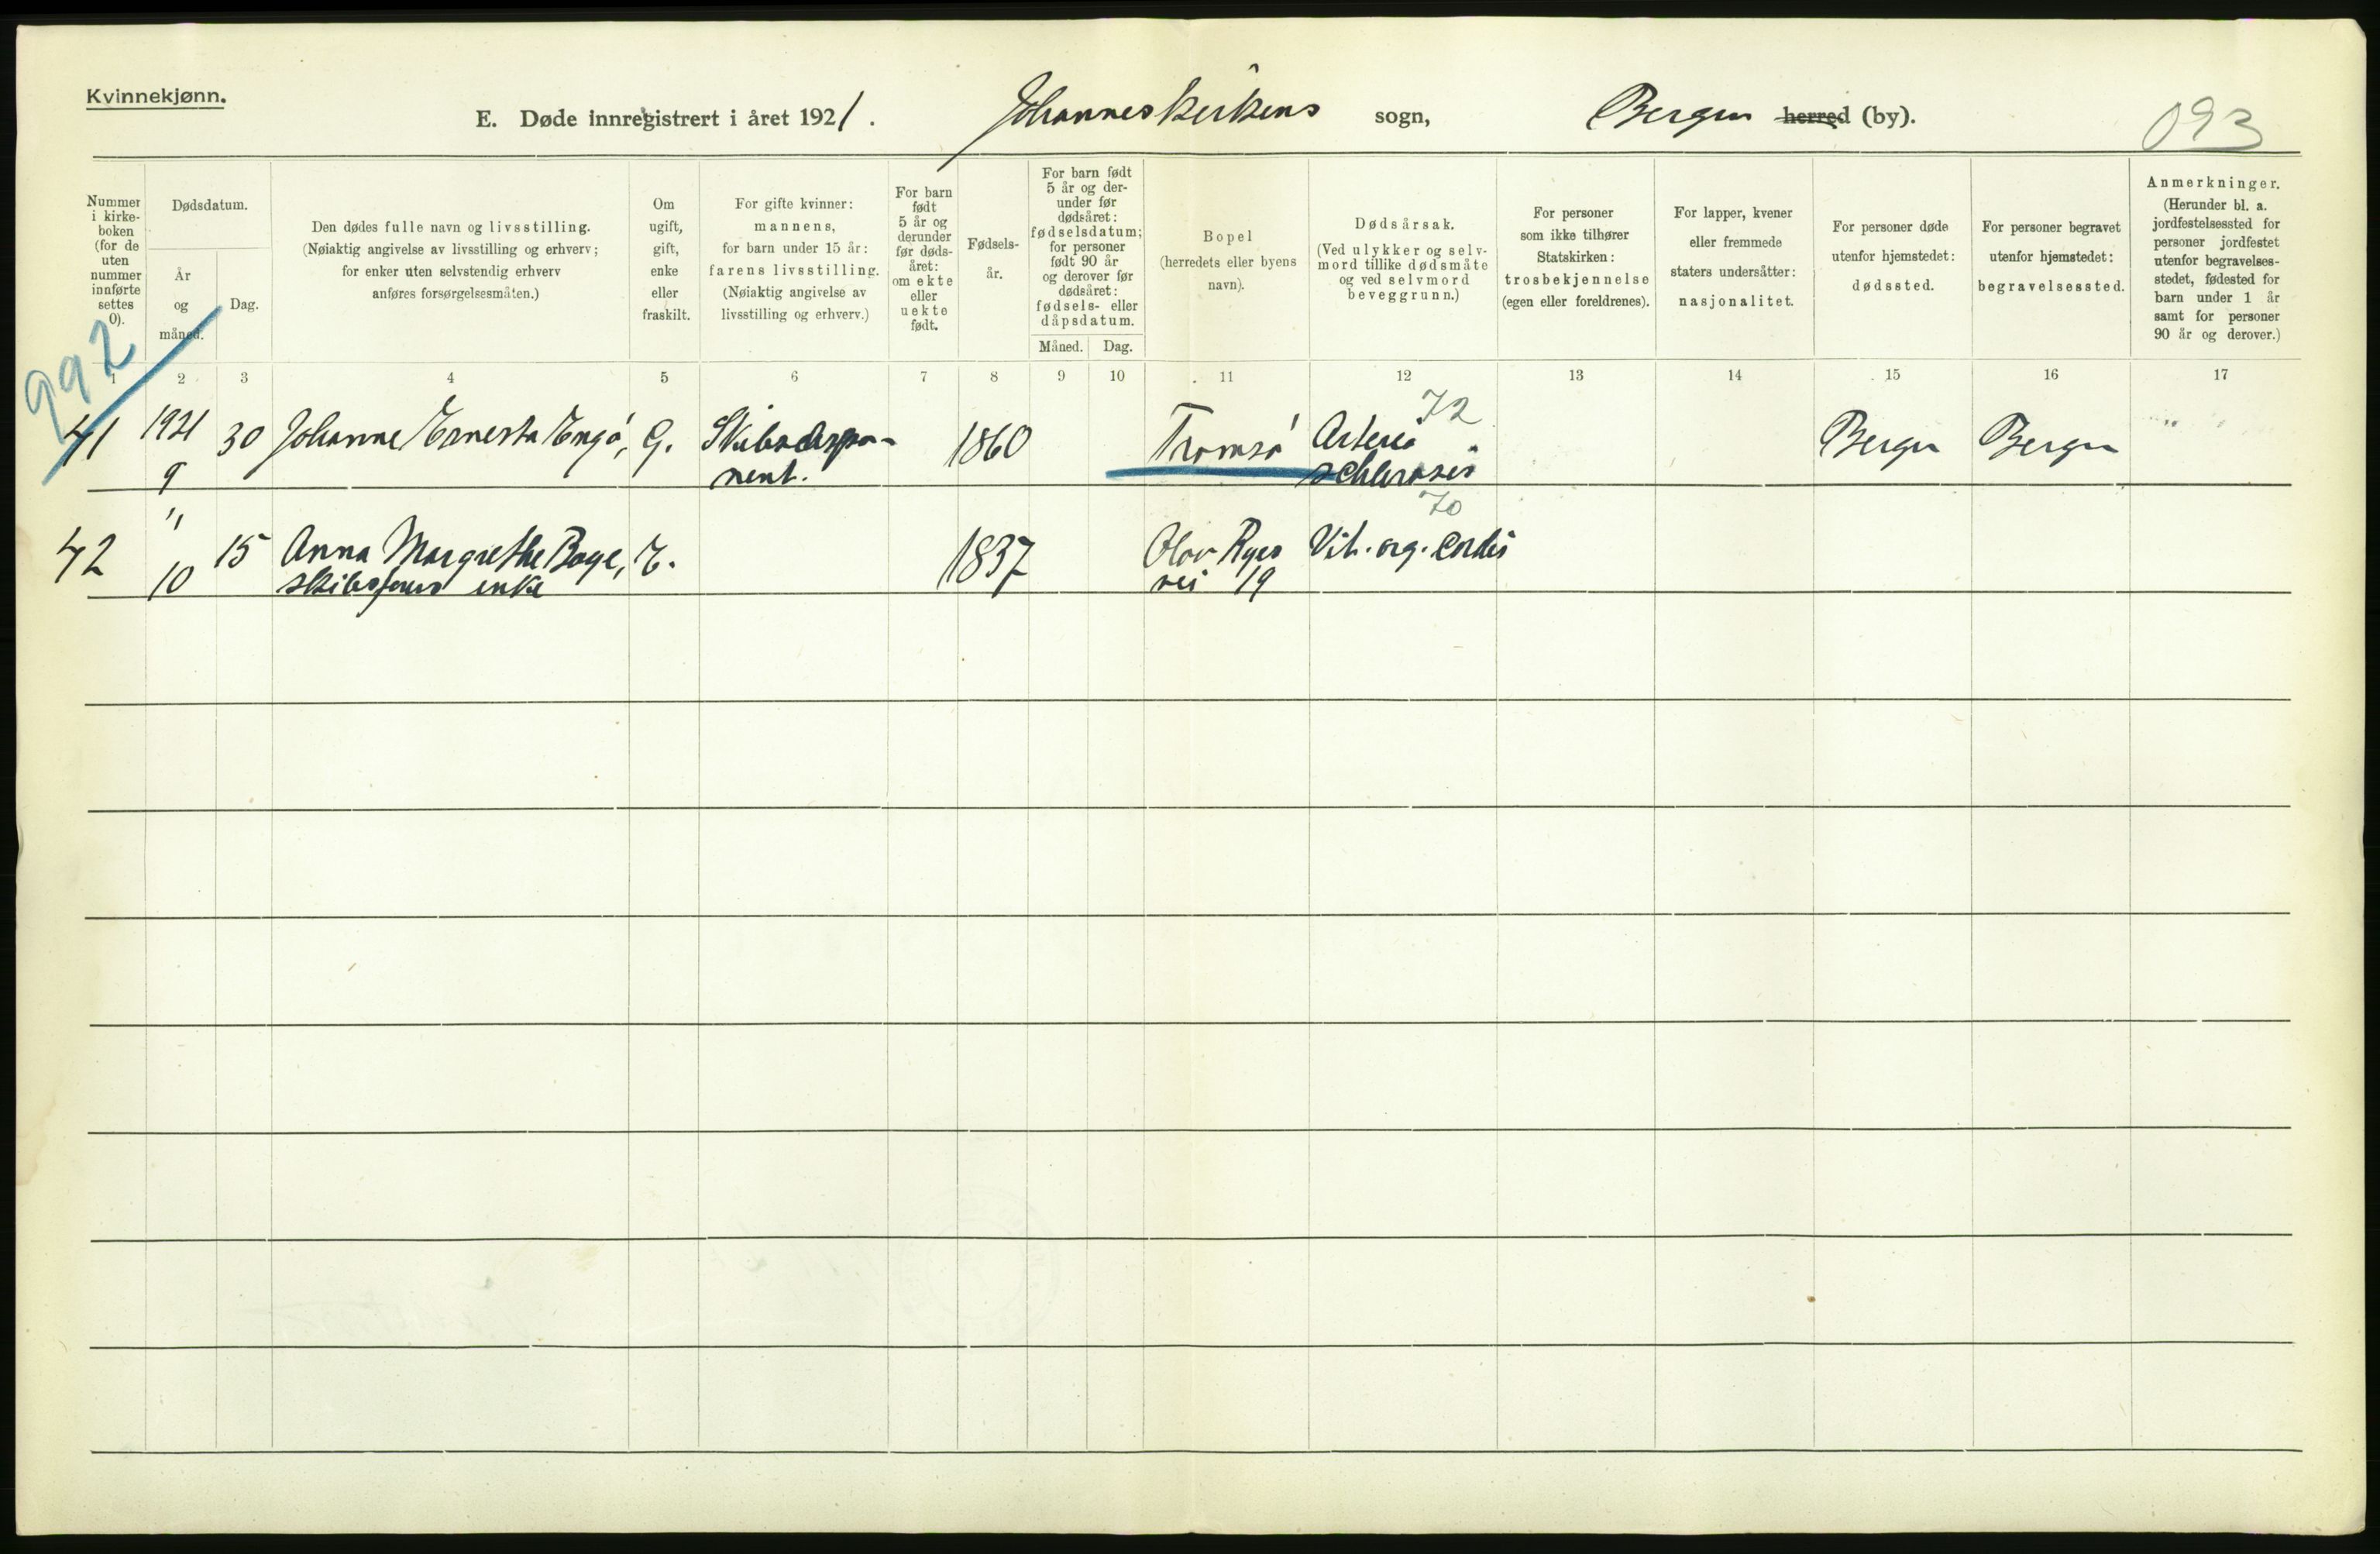 Kvinnekjønn.
E. Døde innregistrert i året 1921. Johanneskirkens sogn, Bergen herred (by).
093
Nummer i kirkeboken (for de uten nummer innførte settes 0).
Dødsdatum.
År og måned.
Dag.
Den dødes fulle navn og livsstilling.
(Nøiaktig angivelse av livsstilling og erhverv;
for enker uten selvstendig erhverv
anføres forsørgelsesmåten.)
Om
ugift,
gift,
enke
eller
fraskilt.
For gifte kvinner:
mannens,
for barn under 15 år:
farens livsstilling.
(Nøiaktig angivelse av
livsstilling og erhverv.)
For barn
født
5 år og
derunder
før døds-
året:
om ekte
eller
uekte
født.
Fødsels-
år.
For barn født
5 år og der-
under før
dødsåret:
fødselsdatum;
for personer
født 90 år
og derover før
dødsåret:
fødsels- eller
dåpsdatum.
Måned. Dag.
Bopel
(herredets eller byens
navn).
Dødsårsak.
(Ved ulykker og selv-
mord tillike dødsmåte
og ved selvmord
beveggrunn.)
For personer
som ikke tilhører
Statskirken:
trosbekjennelse
(egen eller foreldrenes).
For lapper, kvener
eller fremmede
staters undersåtter:
nasjonalitet.
For personer døde
utenfor hjemstedet:
dødssted.
For personer begravet
utenfor hjemstedet:
begravelsessted.
Anmerkninger.
(Herunder bl. a.
jordfestelsessted for
personer jordfestet
utenfor begravelses-
stedet, fødested for
barn under 1 år
samt for personer
90 år og derover.)
992
1 2 3 4 5 6 7 8 9 10 11 12 13 14 15 16 17
72
41 1921 30 Johanne Ernesta Engø, G. Skibsdispo- 1860 Tromsø Arterio Bergen Bergen
9 nent. schlerosis
" 70
42 15 Anna Margrethe Boge, E. 1837 Olav Ryes Vit. org. cordis
10 skibsførers enke vei 19